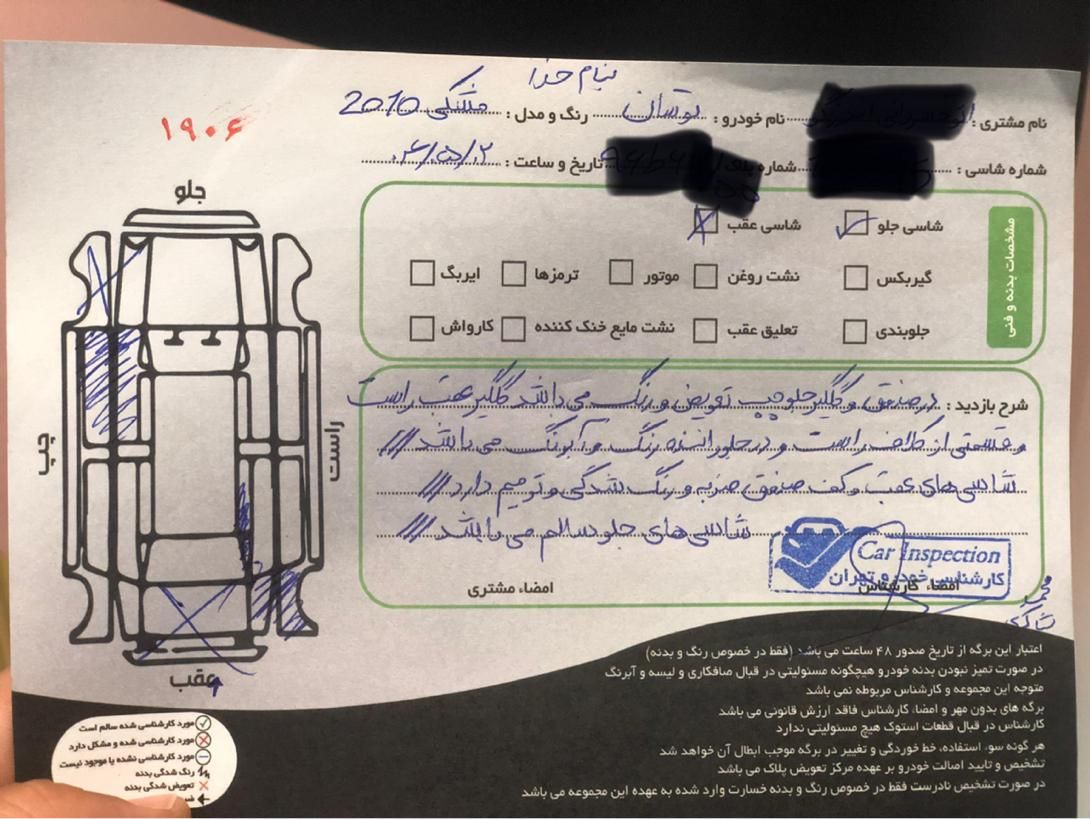 بنام خدا
نام مشتری : نام خودرو : توسان رنگ و مدل : مشکی 2010
۱۹۰۶
شماره شاسی : شماره پلاک تاریخ و ساعت : ۰۴/۵/۱۲
مشخصات بدنه و فنی
شاسی جلو شاسی عقب
گیربکس نشت روغن موتور ترمزها ایربگ
جلوبندی تعلیق عقب نشت مایع خنک کننده کارواش
شرح بازدید : درصندوق و گلگیر جلو چپ تعویض و رنگ می باشد گلگیر عقب راست
و قسمتی از کلاف راست و درجلو راننده رنگ و آبرنگ می باشد
شاسی های عقب و کف صندوق ضربه و رنگ شدگی و ترمیم دارد
شاسی های جلو سالم می باشد
Car Inspection
کارشناسی خودرو تهران
امضاء کارشناس امضاء مشتری
جلو
چپ
راست
عقب
اعتبار این برگه از تاریخ صدور ۴۸ ساعت می باشد (فقط در خصوص رنگ و بدنه)
در صورت تمیز نبودن بدنه خودرو هیچگونه مسئولیتی در قبال صافکاری و لیسه و آبرنگ
متوجه این مجموعه و کارشناس مربوطه نمی باشد
برگه های بدون مهر و امضاء کارشناس فاقد ارزش قانونی می باشد
کارشناس در قبال قطعات استوک هیچ مسئولیتی ندارد
هر گونه سوء استفاده، خط خوردگی و تغییر در برگه موجب ابطال آن خواهد شد
تشخیص و تایید اصالت خودرو بر عهده مرکز تعویض پلاک می باشد
در صورت تشخیص نادرست فقط در خصوص رنگ و بدنه خسارت وارد شده به عهده این مجموعه می باشد
مورد کارشناسی شده سالم است
مورد کارشناسی شده و مشکل دارد
مورد کارشناسی نشده یا موجود نیست
رنگ شدگی بدنه
تعویض شدگی بدنه